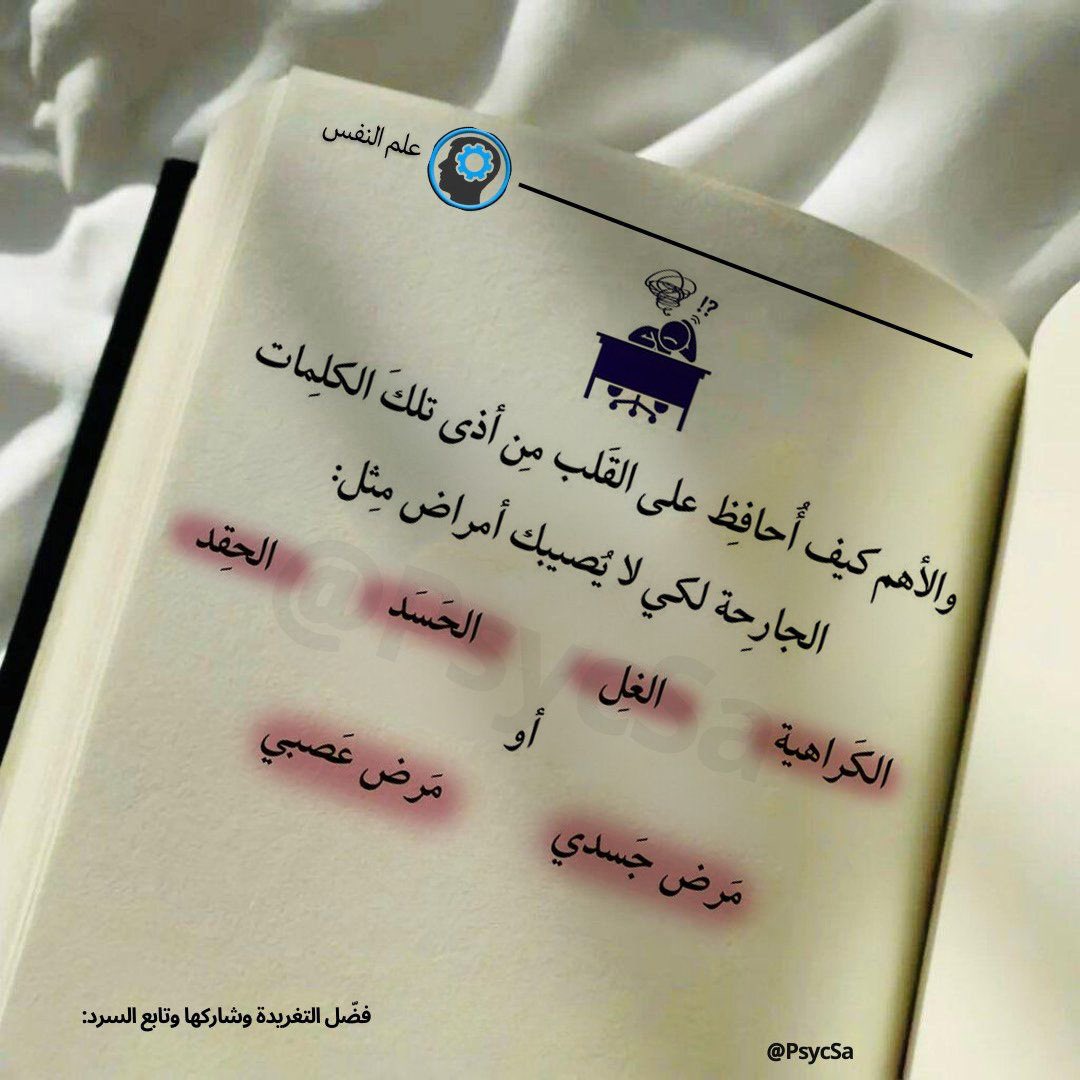 علم النفس
!?
والأهم كيف أُحافِظ على القَلب مِن أذى تلكَ الكلِمات
الجارِحة لكي لا يُصيبك أمراض مِثل:
الكَراهية الغلِ الحَسَد الحقِد
أو
مَرض جَسدي مَرض عَصبي
@PsycSa
فضّل التغريدة وشاركها وتابع السرد:
@PsycSa